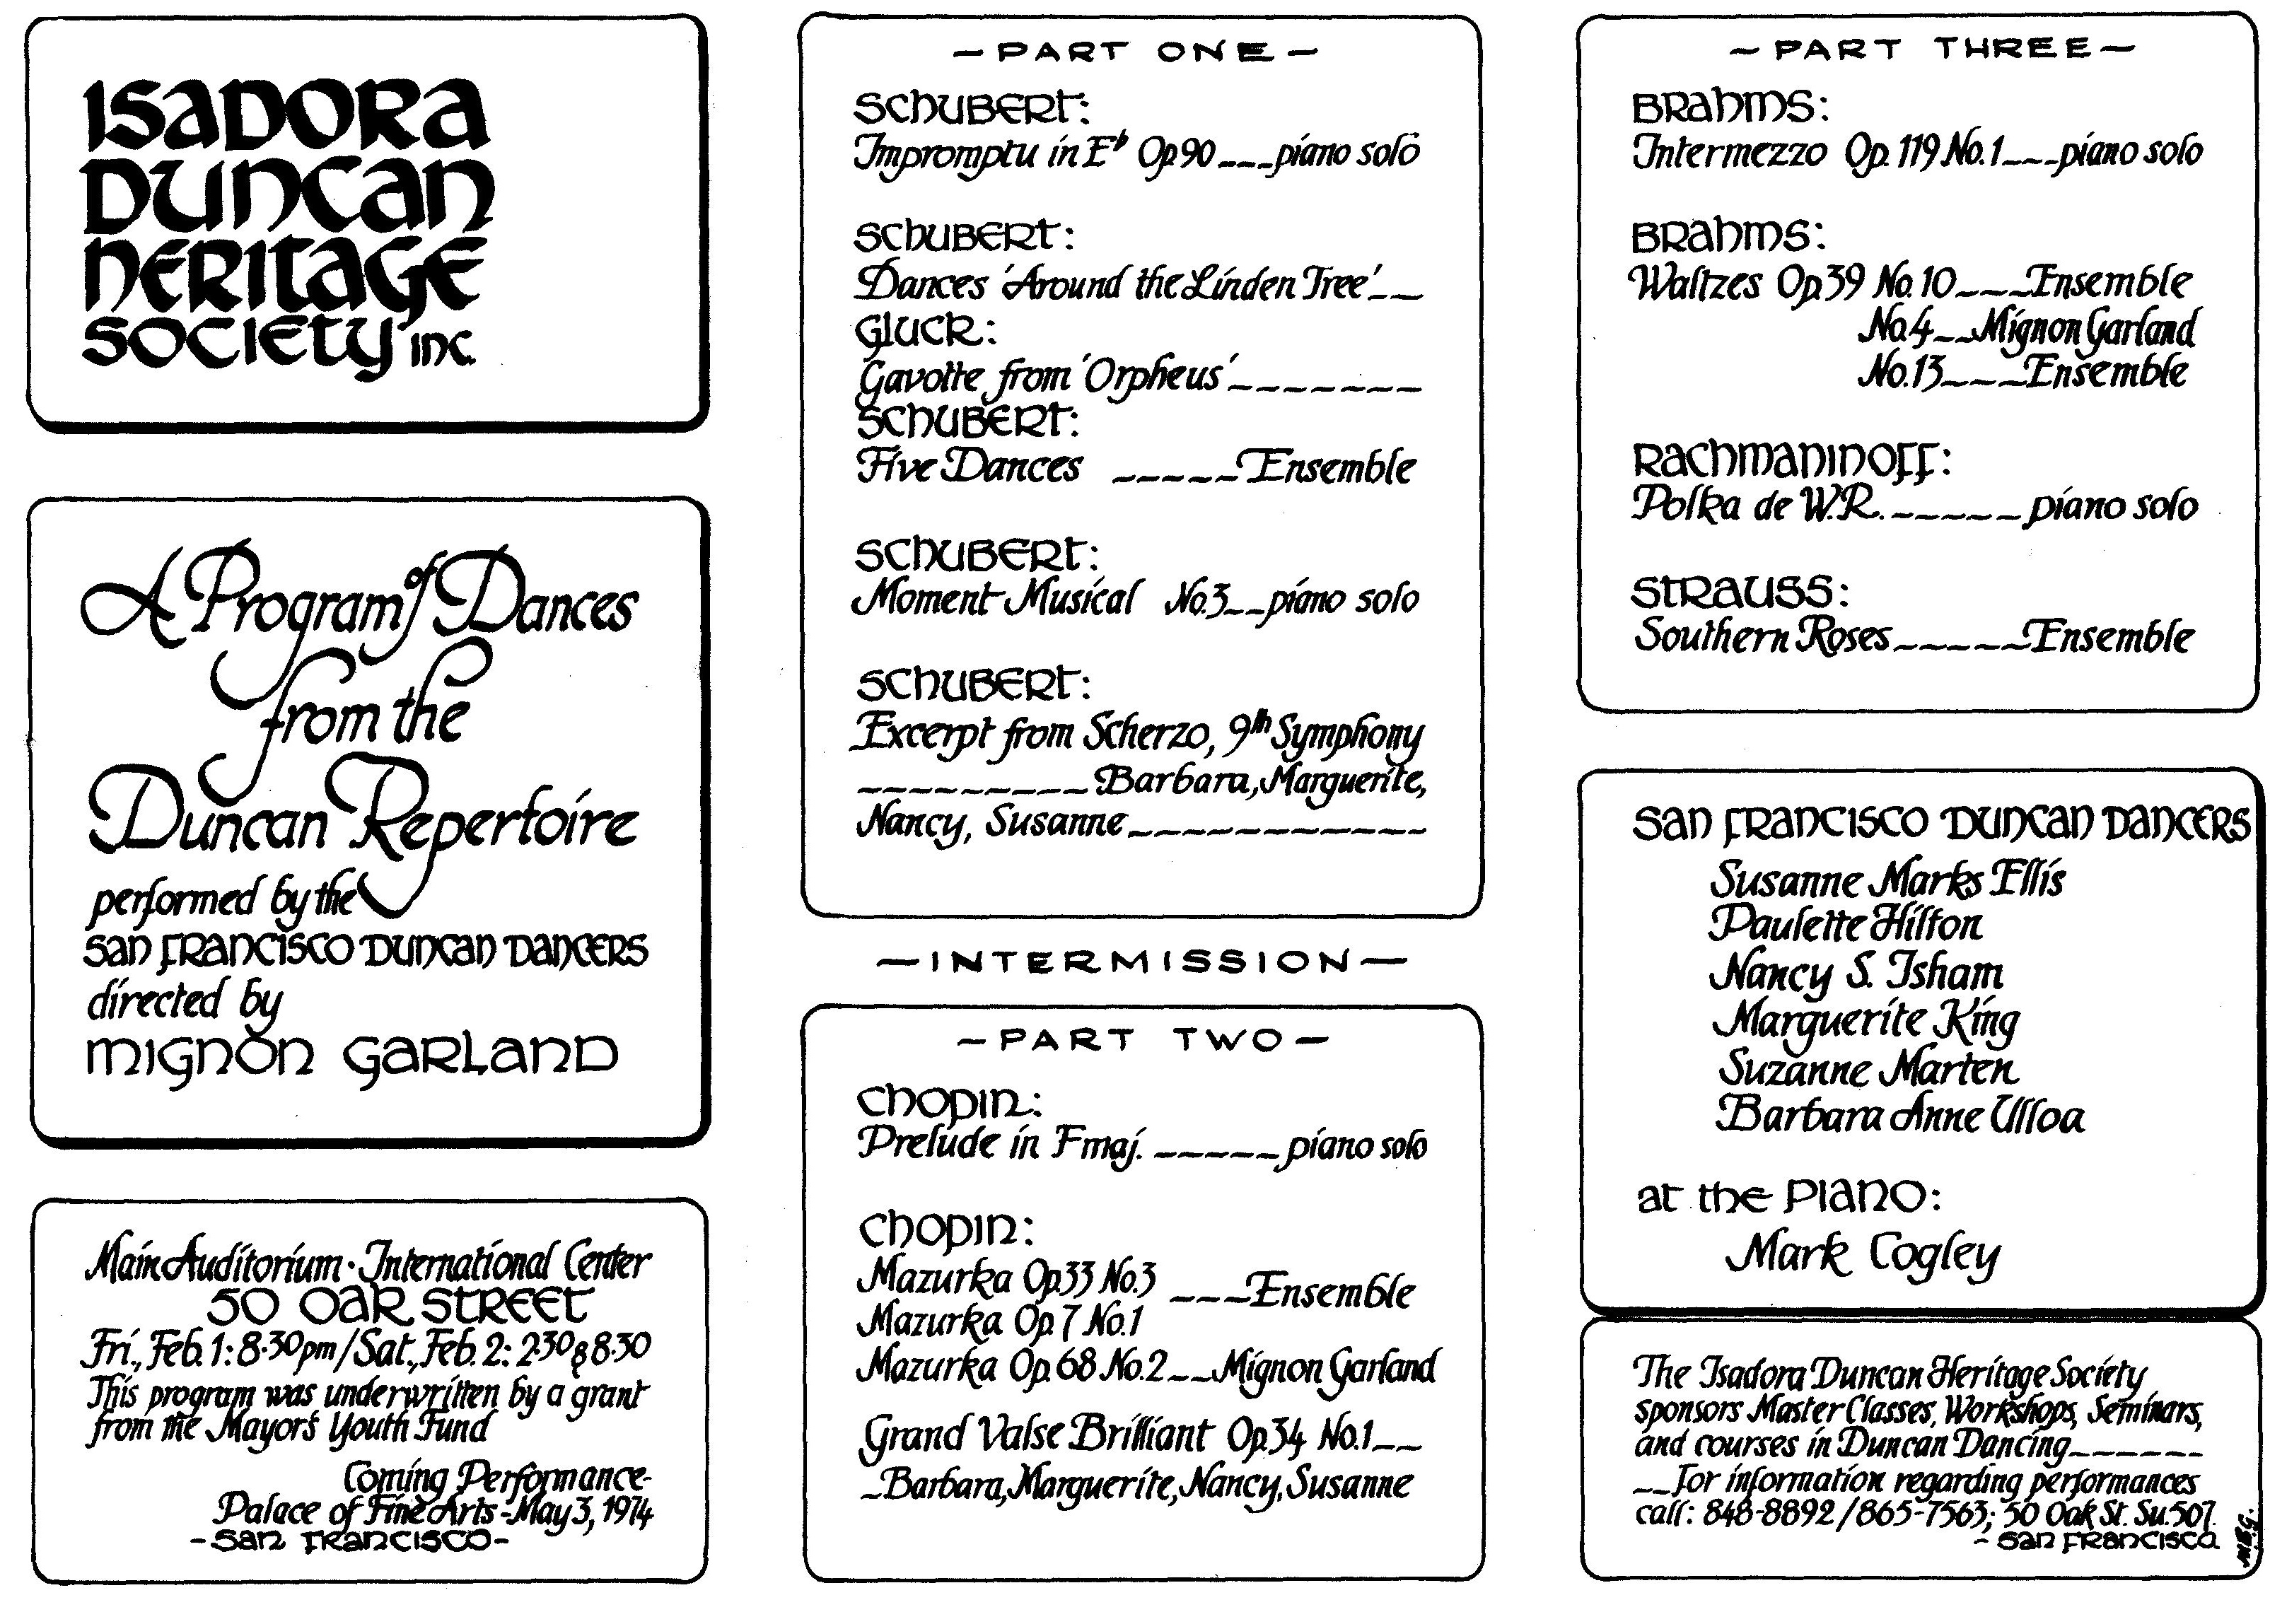 ISADORA
DUNCAN
HERITAGE
SOCIETY INC.
A Program of Dances
from the
Duncan Repertoire
performed by the
SAN FRANCISCO DUNCAN DANCERS
directed by
MIGNON GARLAND
Main Auditorium · International Center
50 OAK STREET
Fri., Feb. 1: 8·30pm / Sat., Feb. 2: 2·30 & 8·30
This program was underwritten by a grant
from the Mayor's Youth Fund
Coming Performance-
Palace of Fine Arts - May 3, 1974
- SAN FRANCISCO -
- PART ONE -
SCHUBERT:
Impromptu in E♭ Op 90 _ _ _ piano solo
SCHUBERT:
Dances 'Around the Linden Tree' _ _
GLUCK:
Gavotte from 'Orpheus' _ _ _ _ _ _ _
SCHUBERT:
Five Dances _ _ _ _ _ Ensemble
SCHUBERT:
Moment Musical No. 3 _ _ piano solo
SCHUBERT:
Excerpt from Scherzo, 9th Symphony
_ _ _ _ _ _ _ _ _ Barbara, Marguerite,
Nancy, Susanne _ _ _ _ _ _ _ _ _ _ _ _
- INTERMISSION -
- PART TWO -
CHOPIN:
Prelude in F maj. _ _ _ _ _ piano solo
CHOPIN:
Mazurka Op. 33 No. 3 _ _ _ Ensemble
Mazurka Op. 7 No. 1
Mazurka Op. 68 No. 2 _ _ Mignon Garland
Grand Valse Brilliant Op. 34 No. 1 _ _
_ Barbara, Marguerite, Nancy, Susanne
- PART THREE -
BRAHMS:
Intermezzo Op. 119 No. 1 _ _ _ piano solo
BRAHMS:
Waltzes Op. 39 No. 10 _ _ _ Ensemble
No. 4 _ _ Mignon Garland
No. 13 _ _ _ Ensemble
RACHMANINOFF:
Polka de W.R. _ _ _ _ _ piano solo
STRAUSS:
Southern Roses _ _ _ _ _ Ensemble
SAN FRANCISCO DUNCAN DANCERS
Susanne Marks Ellis
Paulette Hilton
Nancy S. Isham
Marguerite King
Suzanne Marten
Barbara Anne Ulloa
at the PIANO:
Mark Cogley
The Isadora Duncan Heritage Society
sponsors Master Classes, Workshops, Seminars,
and courses in Duncan Dancing _ _ _ _ _ _
_ _ for information regarding performances
call: 848-8892 / 865-7563; 50 Oak St. Su. 507.
- SAN FRANCISCO